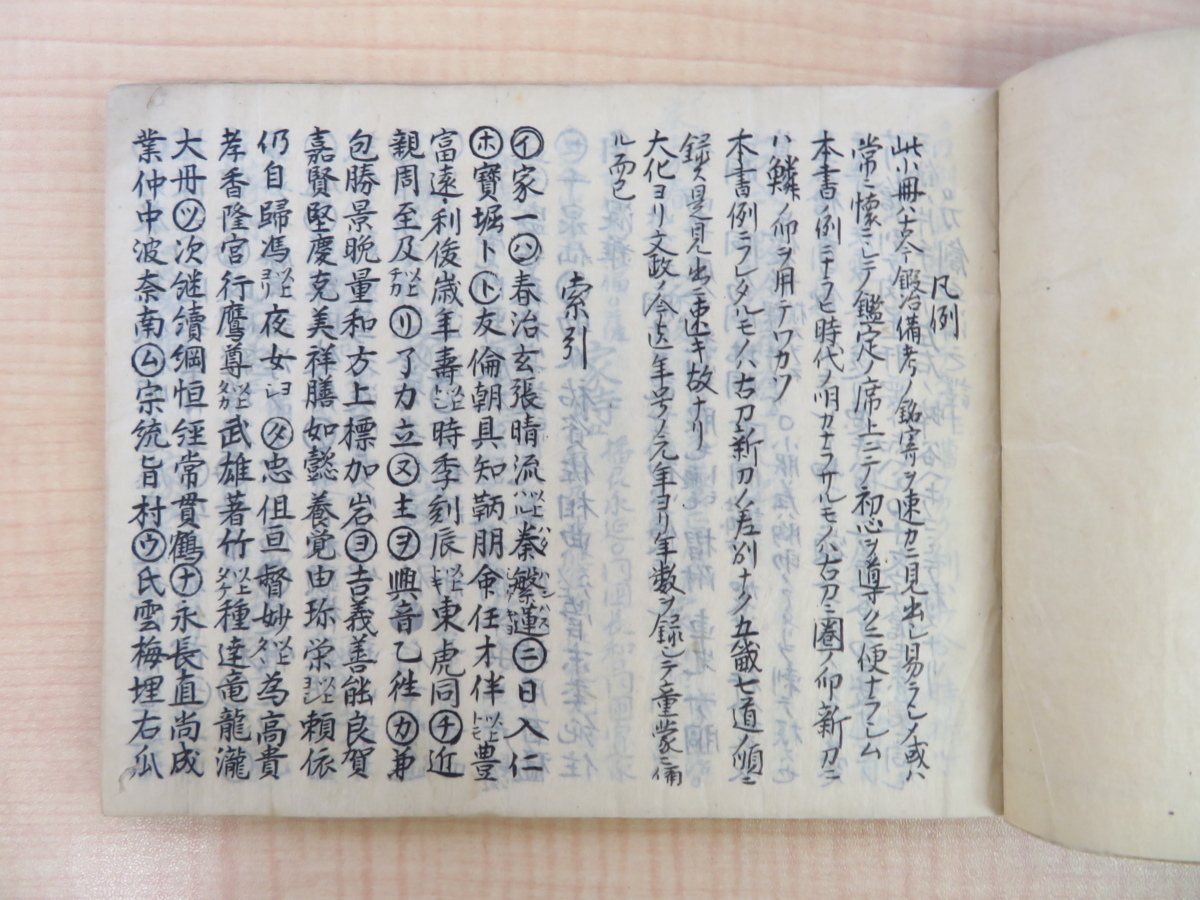 凡例
此小冊ハ古今鍛冶備考ノ銘寄ヲ速カニ見出シ易ラシメ或ハ
常ニ懐ニシテ鑑定ノ席上ニテ初心ヲ導クノ便ナラシム
本書ノ例ニナラヒ時代ノ明カナラサルモノハ古刀ニ圏ノ印新刀ニ
ハ鱗ノ印ヲ用テワカツ
本書ノ例ニフレタルモノハ古刀新刀ノ差別ナク五畿七道ノ順ニ
録ス是見出ニ速キ故ナリ
大化ヨリ文政ノ今迄年号ノ元年ヨリ年数ヲ録シテ童蒙ニ備
ル而已
索引
㋑家一㋩春治玄張晴流以上ハル秦繁蓮㋥日入仁
㋭寶堀卜㋣友倫朝具知鞆朋命任才伴以上トモ豊
富遠利俊歳年壽以上トシ時季刻辰以上トキ東虎同㋠近
親周至及以上チカ㋷了力立㋦土㋾興音乙徃㋕兼
包勝景晩量和方上標加岩㋵吉義善能良賀
嘉賢堅慶克美祥膳如懿養覚由珎栄以上ヨシ頼依
仍自歸馮以上ヨリ夜女ヨ㋟忠但亘督妙以上タヽ為高貴
孝香隆宮行鷹尊以上タカ武雄著竹以上タケ種達竜龍瀧
大丹㋡次継續綱恒経常貫鶴㋤永長直尚成
業仲中波奈南㋰宗統旨村㋒氏雲梅埋右瓜